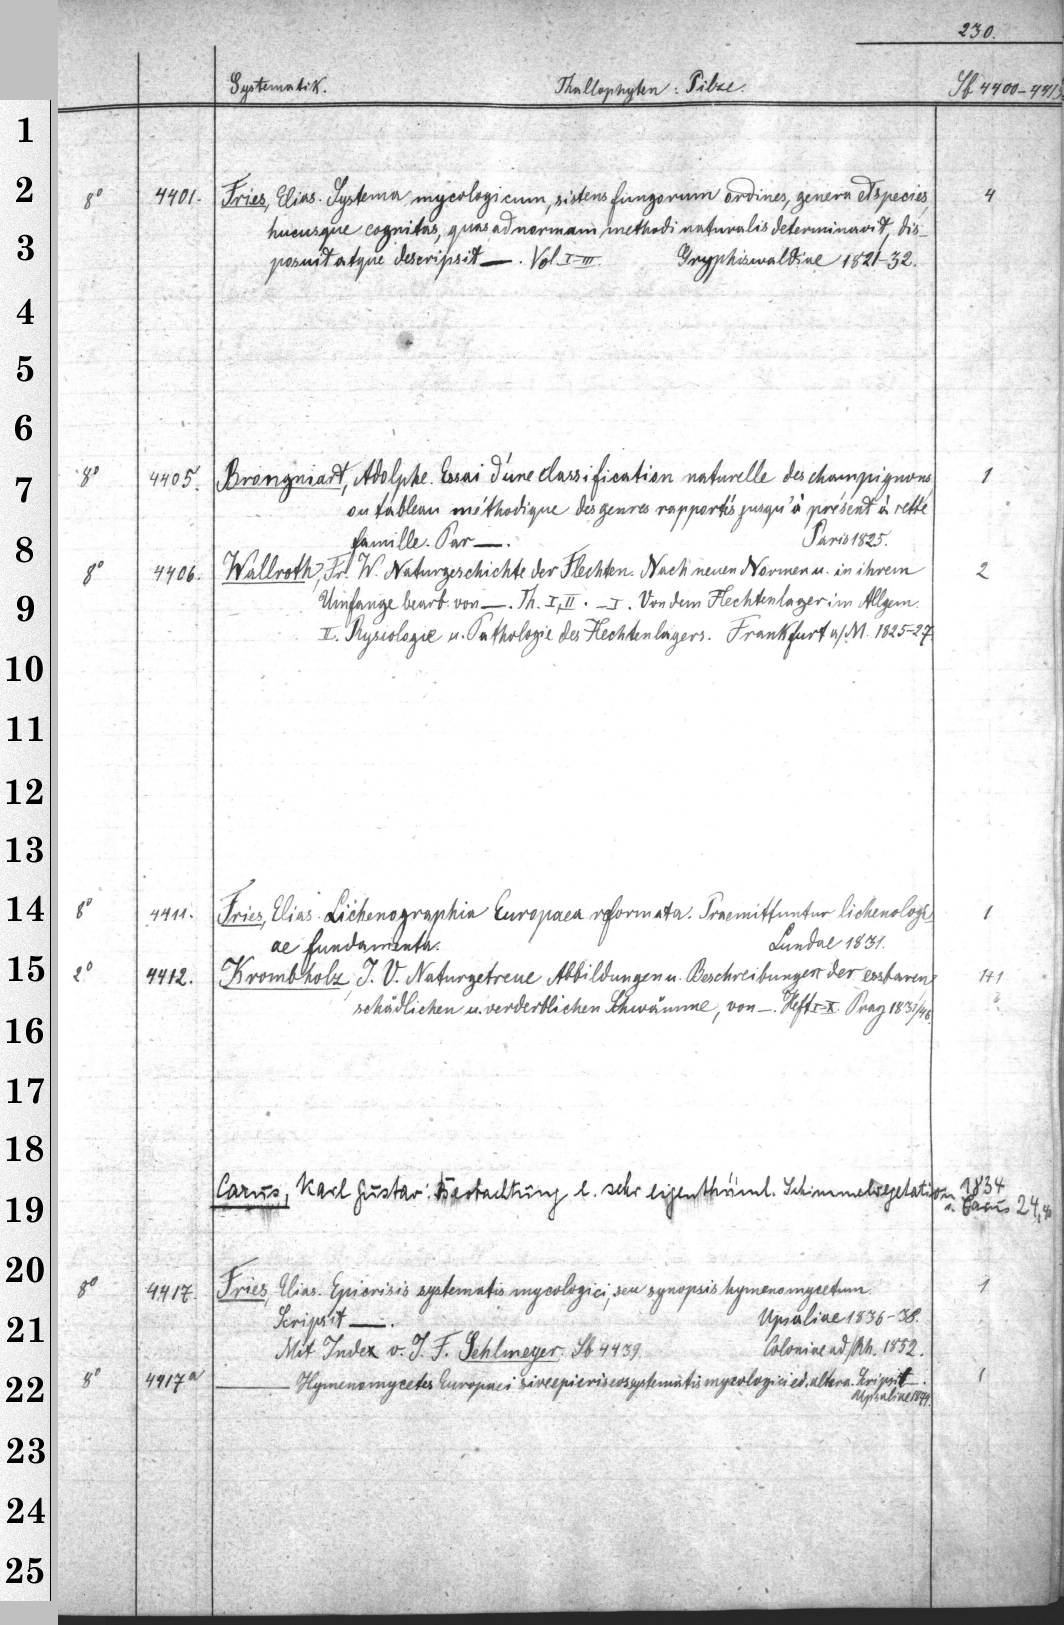 230.
Systematik. Thallophyten: Pilze. Sb 4400-441
1
2
3
4
5
6
7
8
9
10
11
12
13
14
15
16
17
18
19
20
21
22
23
24
25
8° 4401. Fries, Elias. Systema mycologicum, sistens fungorum ordines, genera et species, 4
hucusque cognitas, quas ad normam methodi naturalis determinavit, dis-
posuit atque descripsit —. Vol. I-III. Gryphiswaldiae 1821-32.
8° 4405. Brongniart, Adolphe. Essai d'une classification naturelle des champignons, 1
ou tableau méthodique des genres rapportés jusqu'à présent à cette
famille. Par —. Paris 1825.
8° 4406. Wallroth, Fr. W. Naturgeschichte der Flechten. Nach neuen Normen u. in ihrem 2
Umfange bearb. von —. Th. I, II. - I. Von dem Flechtenlager im Allgem.
II. Physiologie u. Pathologie des Flechtenlagers. Frankfurt a/M. 1825-27
8° 4411. Fries, Elias. Lichenographia Europaea reformata. Praemittuntur lichenologi- 1
ae fundamenta. Lundae 1831.
2° 4412. Krombholz, J. V. Naturgetreue Abbildungen u. Beschreibungen der essbaren, 1+1
schädlichen u. verderblichen Schwämme, von —. Heft I-X. Prag 1831/46.
Carus, Karl Gustav: Beobachtung e. sehr eigenthüml. Schimmelvegetation 1834
s. Carus 24,
8° 4417. Fries, Elias. Epicrisis systematis mycologici, seu synopsis hymenomycetum. 1
Scripsit —. Upsaliae 1836-38.
Mit Index v. J. F. Sehlmeyer. Sb 4439. Coloniae ad/Rh. 1852.
8° 4417a — Hymenomycetes Europaei sive epicriseos systematis mycologici ed. altera. Scripsit —. 1
Upsaliae 1874.